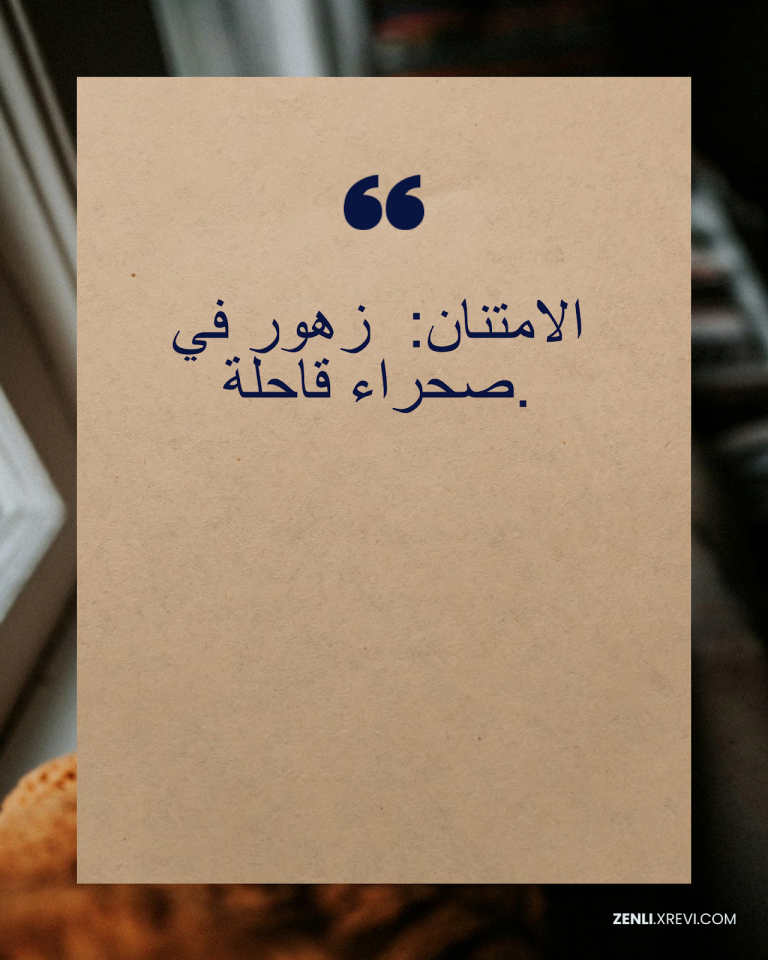 “
الامتنان: زهور في
.صحراء قاحلة
ZENLI.XREVI.COM